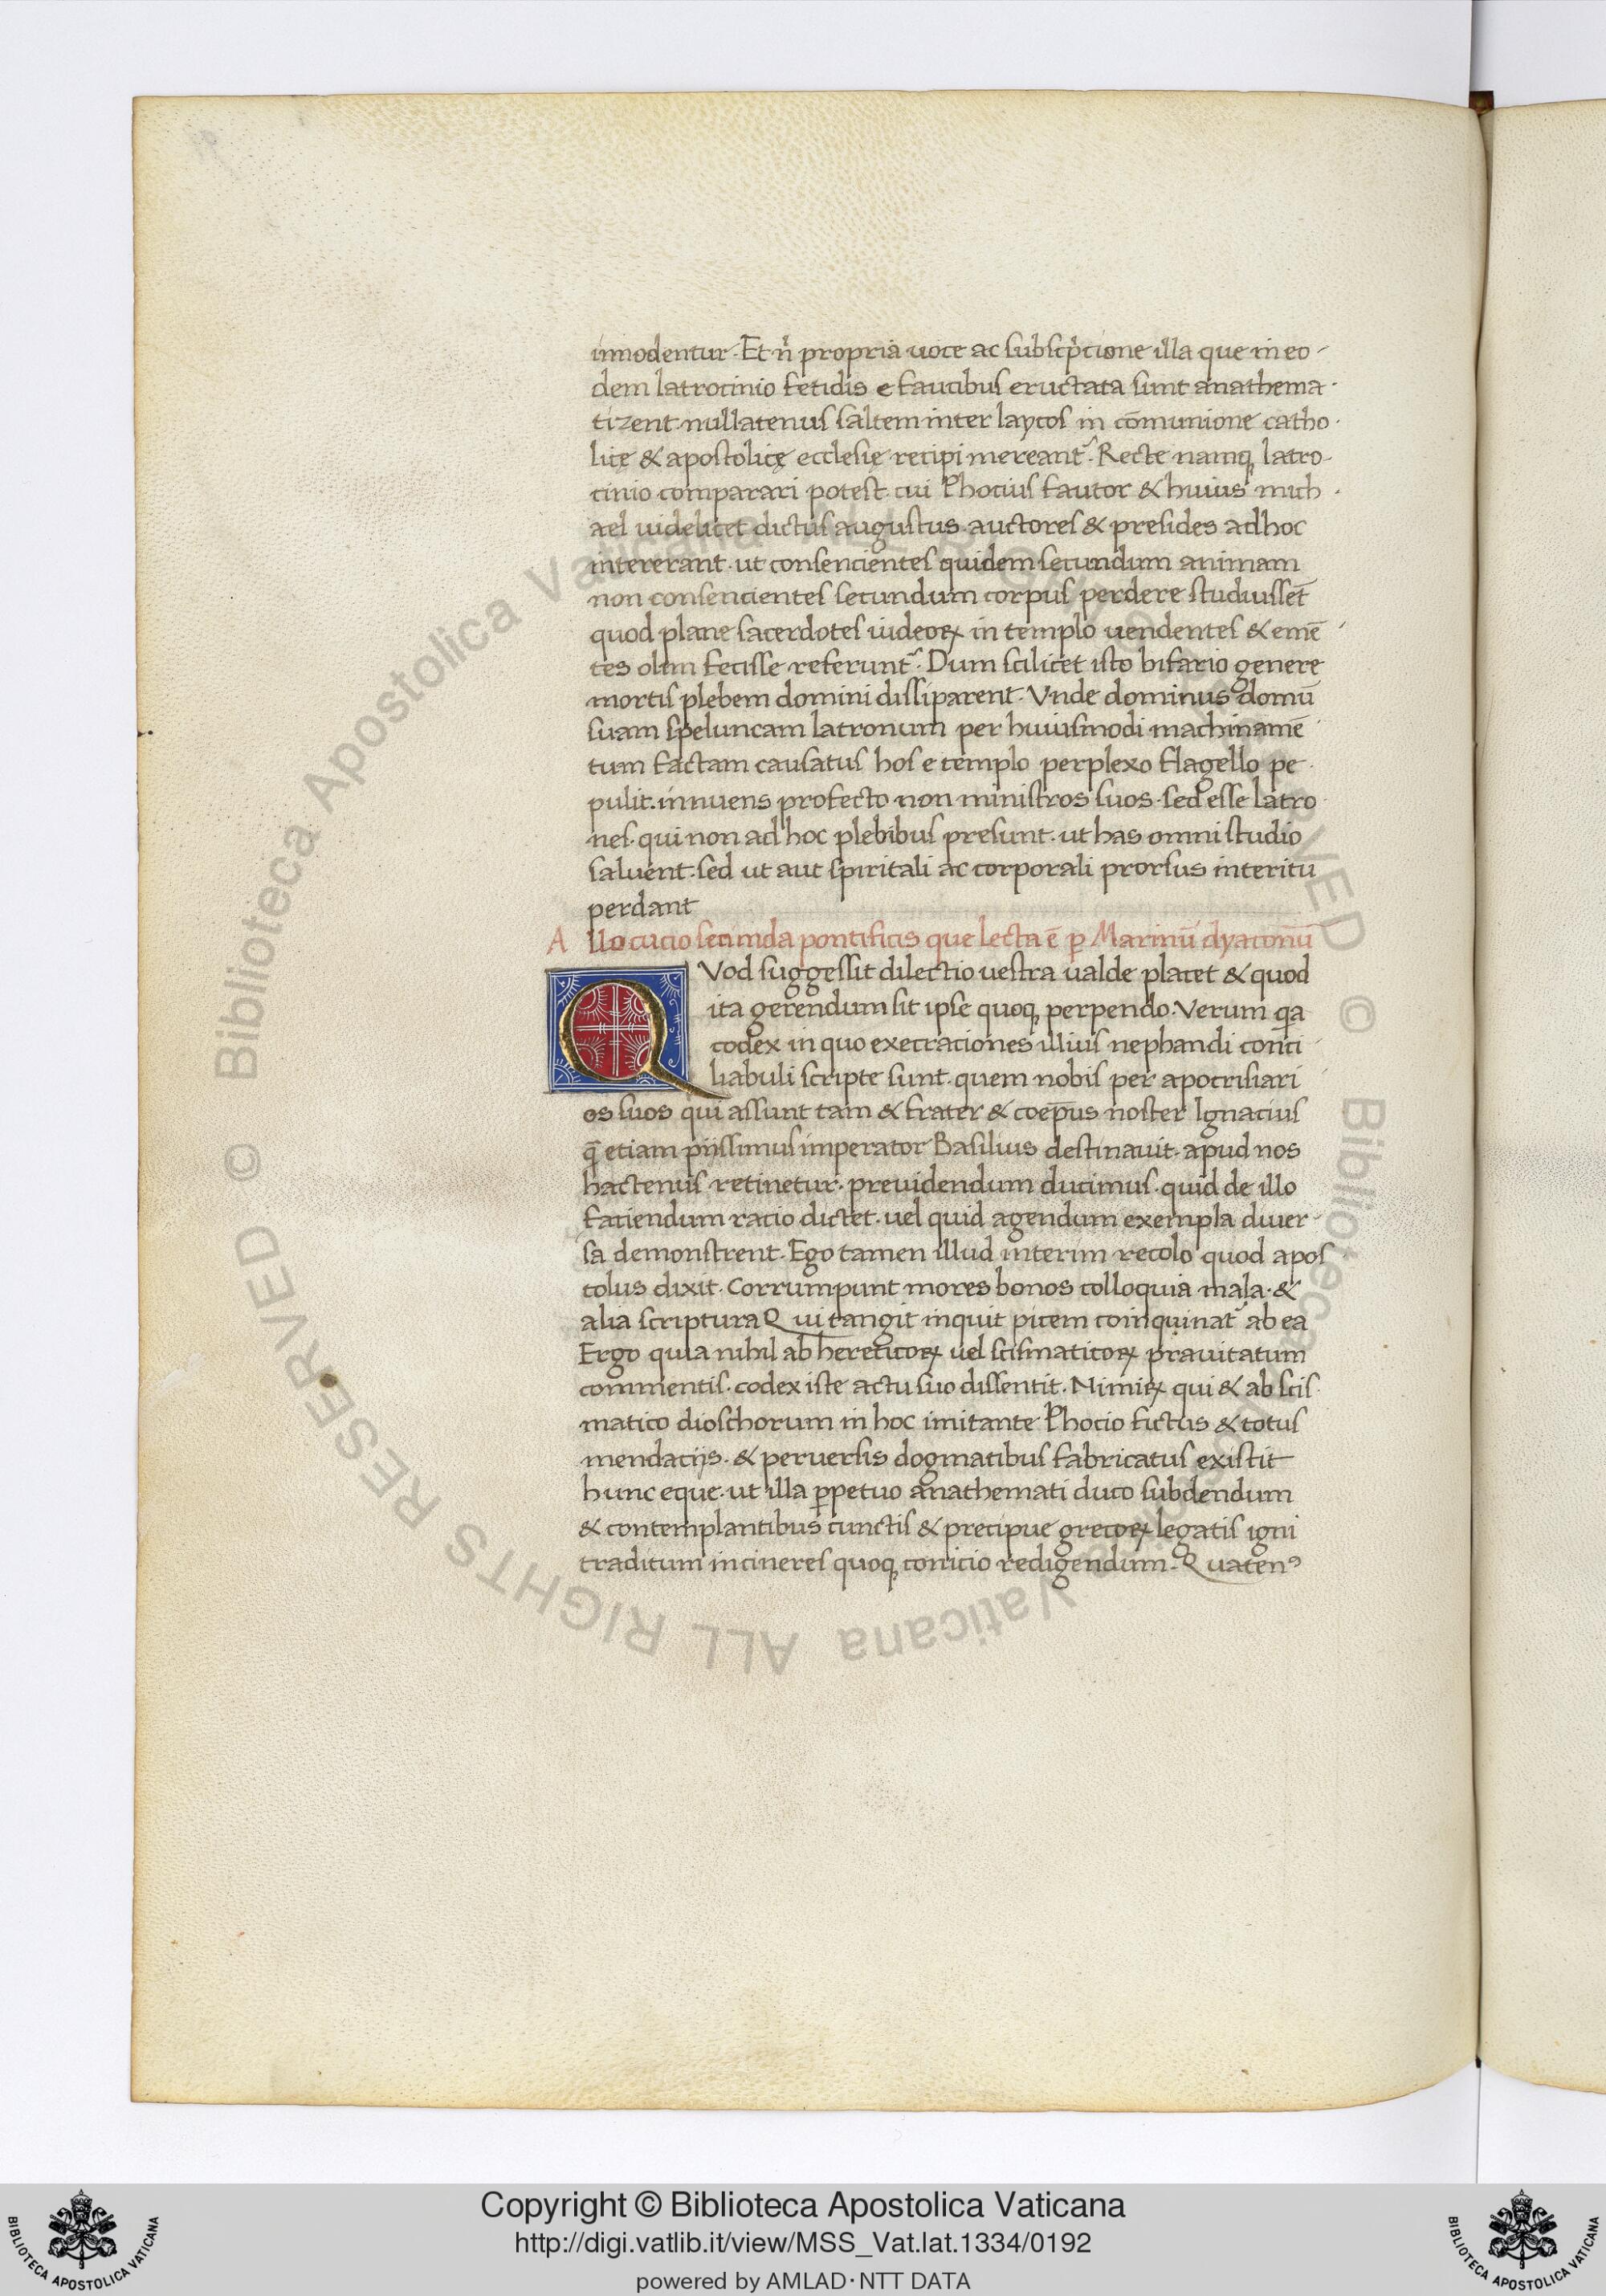 innodentur. Et n̄ propria uoce ac subscp̄cione illa que in eo-
dem latrocinio fetidis e faucibus eructata sunt anathema-
tizent nullatenus saltem inter laycos in cōmunione catho-
lice & apostolicę ecclesię recipi mereant᷑. Recte namqꝫ latro-
cinio comparari potest cui Photius fautor & huius mich-
ael uidelicet dictus augustus auctores & presides adhoc
intererant. ut consencientes quidem secundum animam
non consencientes secundum corpus perdere studuissēt
quod plane sacerdotes iudeoꝝ in templo uendentes & emē-
tes olim fecisse referunt᷑. Dum scilicet isto bifario genere
mortis plebem domini dissiparent. Vnde dominus domū
suam speluncam latronum per huiusmodi machinamē-
tum factam causatus hos e templo perplexo flagello pe-
pulit. innuens profecto non ministros suos. sed esse latro-
nes. qui non ad hoc plebibus presunt. ut has omni studio
saluent. sed ut aut spiritali ac corporali prorsus interitu
perdant
Allocucio secunda pontificis que lecta ē ꝑ Marinū dyaconū
QVod suggessit dilectio uestra ualde placet & quod
ita gerendum sit ipse quoqꝫ perpendo. Verum qa
codex in quo execraciones illius nephandi conci-
liabuli scripte sunt. quem nobis per apocrisiari-
os suos qui assunt tam & frater & coep̄us noster Ignacius
q̄ etiam pijssimus imperator Basilius destinauit. apud nos
hactenus retinetur. preuidendum ducimus. quid de illo
faciendum racio dictet. uel quid agendum exempla diuer-
sa demonstrent. Ego tamen illud interim recolo quod apos-
tolus dixit. Corrumpunt mores bonos colloquia mala. &
alia scriptura Qui tangit inquit picem coinquinat᷑ ab ea
Ergo quia nihil ab hereticoꝝ uel scismaticoꝝ prauitatum
commentis. codex iste actu suo dissentit. Nimiꝝ qui & ab scis-
matico dioschorum in hoc imitante Photio fictus & totus
mendacijs. & peruersis dogmatibus fabricatus existit
hunc eque. ut illa ꝑpetuo anathemati duco subdendum
& contemplantibus cunctis & precipue grecoꝝ legatis igni
traditum incineres quoqꝫ conicio redigendum. Quatenꝰ
Copyright © Biblioteca Apostolica Vaticana
http://digi.vatlib.it/view/MSS_Vat.lat.1334/0192
powered by AMLAD·NTT DATA
BIBLIOTECA APOSTOLICA VATICANA
BIBLIOTECA APOSTOLICA VATICANA
© Biblioteca Apostolica Vaticana ALL RIGHTS RESERVED © Biblioteca Apostolica Vaticana ALL RIGHTS RESERVED